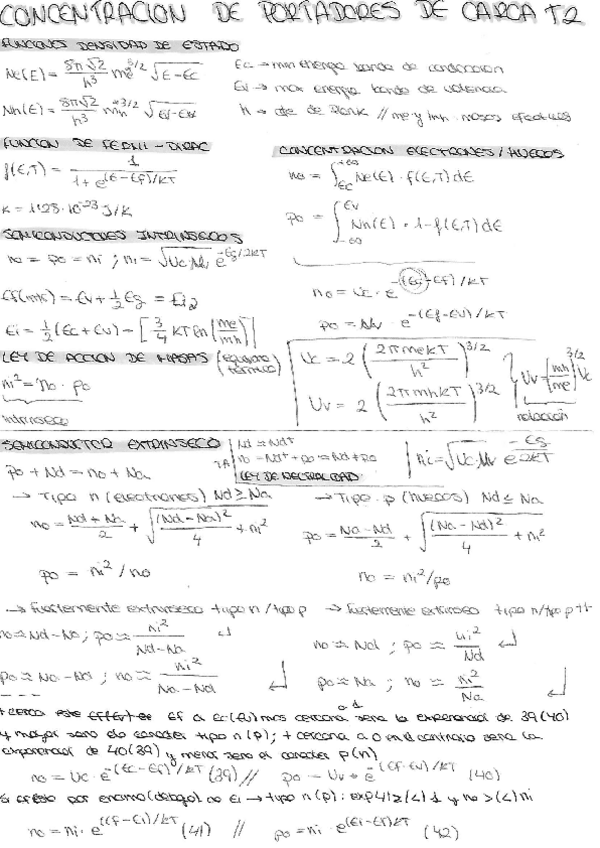 CONCENTRACION DE PORTADORES DE CARGA T2
FUNCIONES DENSIDAD DE ESTADO
Ne(E) = 8π√2/h³ me^3/2 √E-Ec
Ec → min energia banda de conduccion
Ev → max energia banda de valencia
Nh(E) = 8π√2/h³ mh^3/2 √Ev-E
h → cte de Plank // me y mh masas efectivas
FUNCION DE FERMI-DIRAC
f(E,T) = 1/1+e^(E-Ef)/kT
K = 1'28·10^-23 J/K
CONCENTRACION ELECTRONES/HUECOS
no = ∫Ec^+∞ Ne(E)·f(E,T)dE
po = ∫-∞^Ev Nh(E)·1-f(E,T)dE
no = Uc·e^-(Ec-Ef)/kT
po = Uv·e^-(Ef-Ev)/kT
SEMICONDUCTORES INTRINSECOS
no = po = ni ; ni = √Uc·Uv e^-Eg/2kT
Ef(int) = Ev + 1/2 Eg = Ei
Ei = 1/2(Ec+Ev) - [3/4 kT ln(me/mh)]
LEY DE ACCION DE MASAS (equilibrio termico)
ni² = no·po
intrinseco
Uc = 2 (2πmekT/h²)^3/2
Uv = 2 (2πmhkT/h²)^3/2
Uv = (mh/me)^3/2 Uc
relacion
SEMICONDUCTOR EXTRINSECO
Nd ≈ Nd+
no - Nd+ + po = Nd + po
LEY DE NEUTRALIDAD
ni = √Uc·Uv e^-Eg/2kT
po + Nd = no + Na
→ Tipo n (electrones) Nd ≥ Na
no = Nd+Na/2 + √(Nd-Na)²/4 + ni²
po = ni²/no
→ Tipo p (huecos) Nd ≤ Na
po = Na-Nd/2 + √(Na-Nd)²/4 + ni²
no = ni²/po
→ Fuertemente extrinseco tipo n/tipo p
no ≈ Nd-Na ; po ≈ ni²/Nd-Na
po ≈ Na-Nd ; no ≈ ni²/Na-Nd
→ Fuertemente extrinseco tipo n/tipo p++
no ≈ Nd ; po ≈ ni²/Nd
po ≈ Na ; no ≈ ni²/Na
+ cerca este Ef a Ec(Ev) mas cercana sera la exponencial de 39(40)
y mayor sera el caracter tipo n(p); + cercana a 0 en el contrario sera la
exponencial de 40(39) y menor sera el caracter p(n)
no = Uc·e^-(Ec-Ef)/kT (39) // po = Uv·e^-(Ef-Ev)/kT (40)
Si Ef esta por encima(debajo) de Ei → tipo n(p): exp 41 ≥(≤) 1 y no >(<) ni
no = ni·e^(Ef-Ei)/kT (41) // po = ni·e^(Ei-Ef)/kT (42)